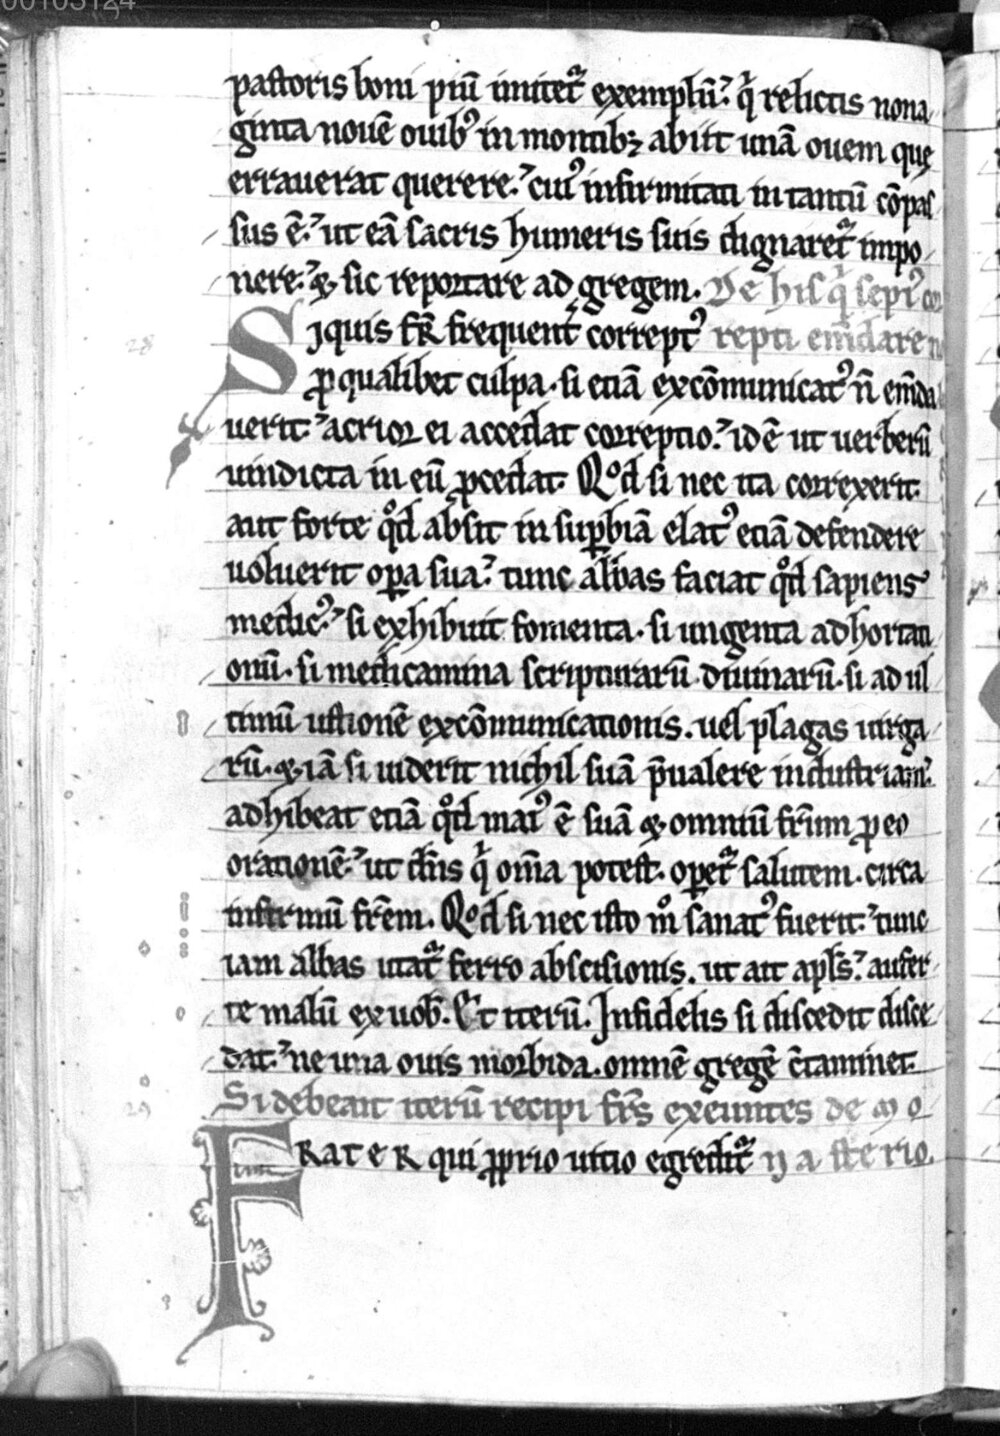 00103124
pastoris boni piū imitet᷑ exemplū. qͥ relictis nona
ginta nouē ouibꝰ in montibꝫ abiit unā ouem quę
errauerat querere. cuiꝰ infirmitati in tantū cōpas
sus ē. ut eā sacris humeris suis dignaret᷑ impo
nere. ⁊ sic reportare ad gregem. De his qͥ sepiꝰ cor
Siquis fr̄ frequent̄ correptꝰ repti em̄dare n
ꝓ qualibet culpa. si etiā excōmunicatꝰ n̄ em̄da
uerit. acrior ei accedat correptio. id ē ut uerberū
uindicta in eū ꝓcedat. Qͦd si nec ita correxerit.
aut forte qͦd absit in suꝑbiā elatꝰ etiā defendere
uoluerit oꝑa sua. tunc abbas faciat qͦd sapiens
medicꝰ. si exhibuit fomenta. si ungenta adhortati
onū. si medicamina scripturarū diuinarū. si ad ul
timū ustionē excōmunicationis. uel plagas uirga
rū. ⁊ iā si uiderit nichil suā p̄ualere industriam.
adhibeat etiā qͦd maiꝰ ē suā ⁊ omniū fr̄um ꝓ eo
orationē. ut dn̄s qͥ om̄a potest. oꝑet᷑ salutem. circa
infirmū fr̄em. Qͦd si nec isto mͦ sanatꝰ fuerit. tunc
iam abbas utat᷑ ferro abscisionis. ut ait apl̄s. aufer
te malū ex uob̄. Et iterū. Infidelis si discedit disce
dat. ne una ouis morbida. omnē gregē c̄taminet.
Si debeant iterū recipi fr̄s exeuntes de mo
FRATER qui ꝓprio uitio egredit᷑ nasterio.
28
29